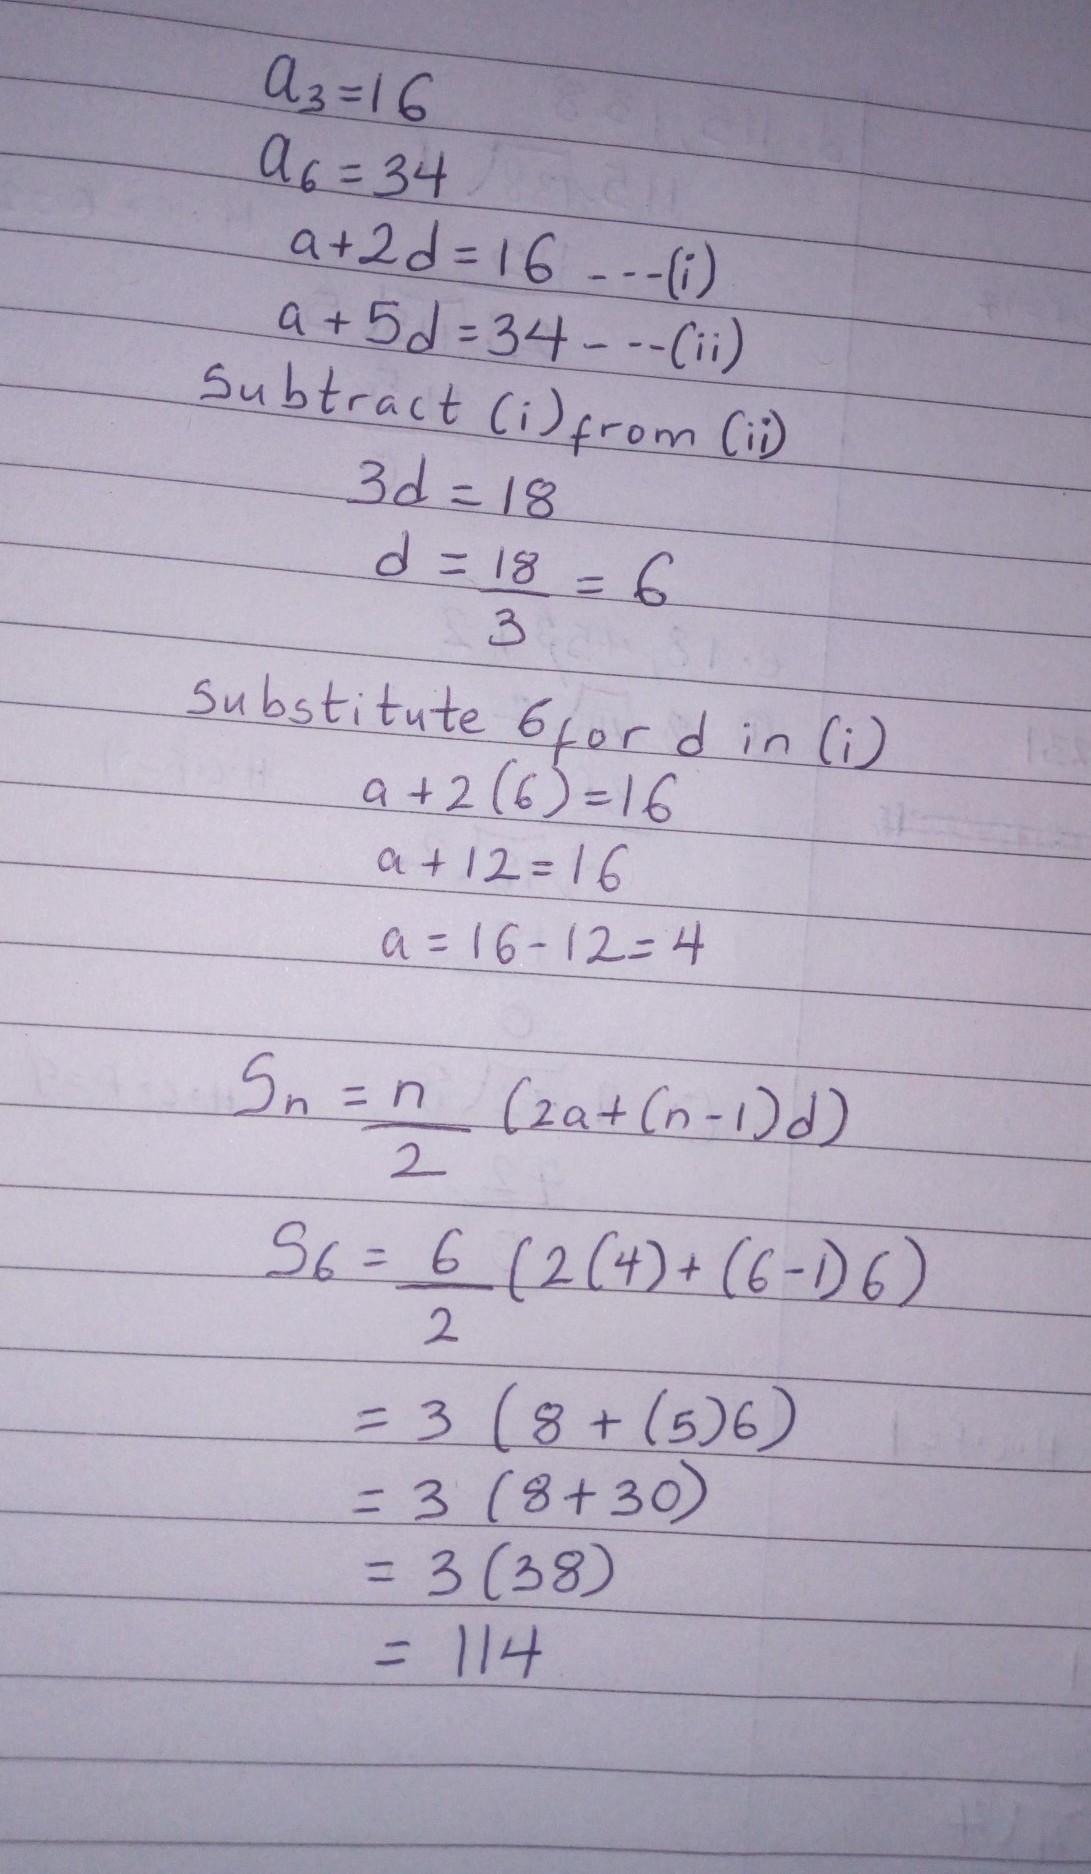 a₃=16
a₆=34
a+2d=16 ---(i)
a+5d=34---(ii)
Subtract (i) from (ii)
3d=18
d = 18/3 = 6
Substitute 6 for d in (i)
a+2(6)=16
a+12=16
a=16-12=4
Sₙ = n/2 (2a+(n-1)d)
S₆ = 6/2 (2(4)+(6-1)6)
= 3 (8+(5)6)
= 3 (8+30)
= 3(38)
= 114